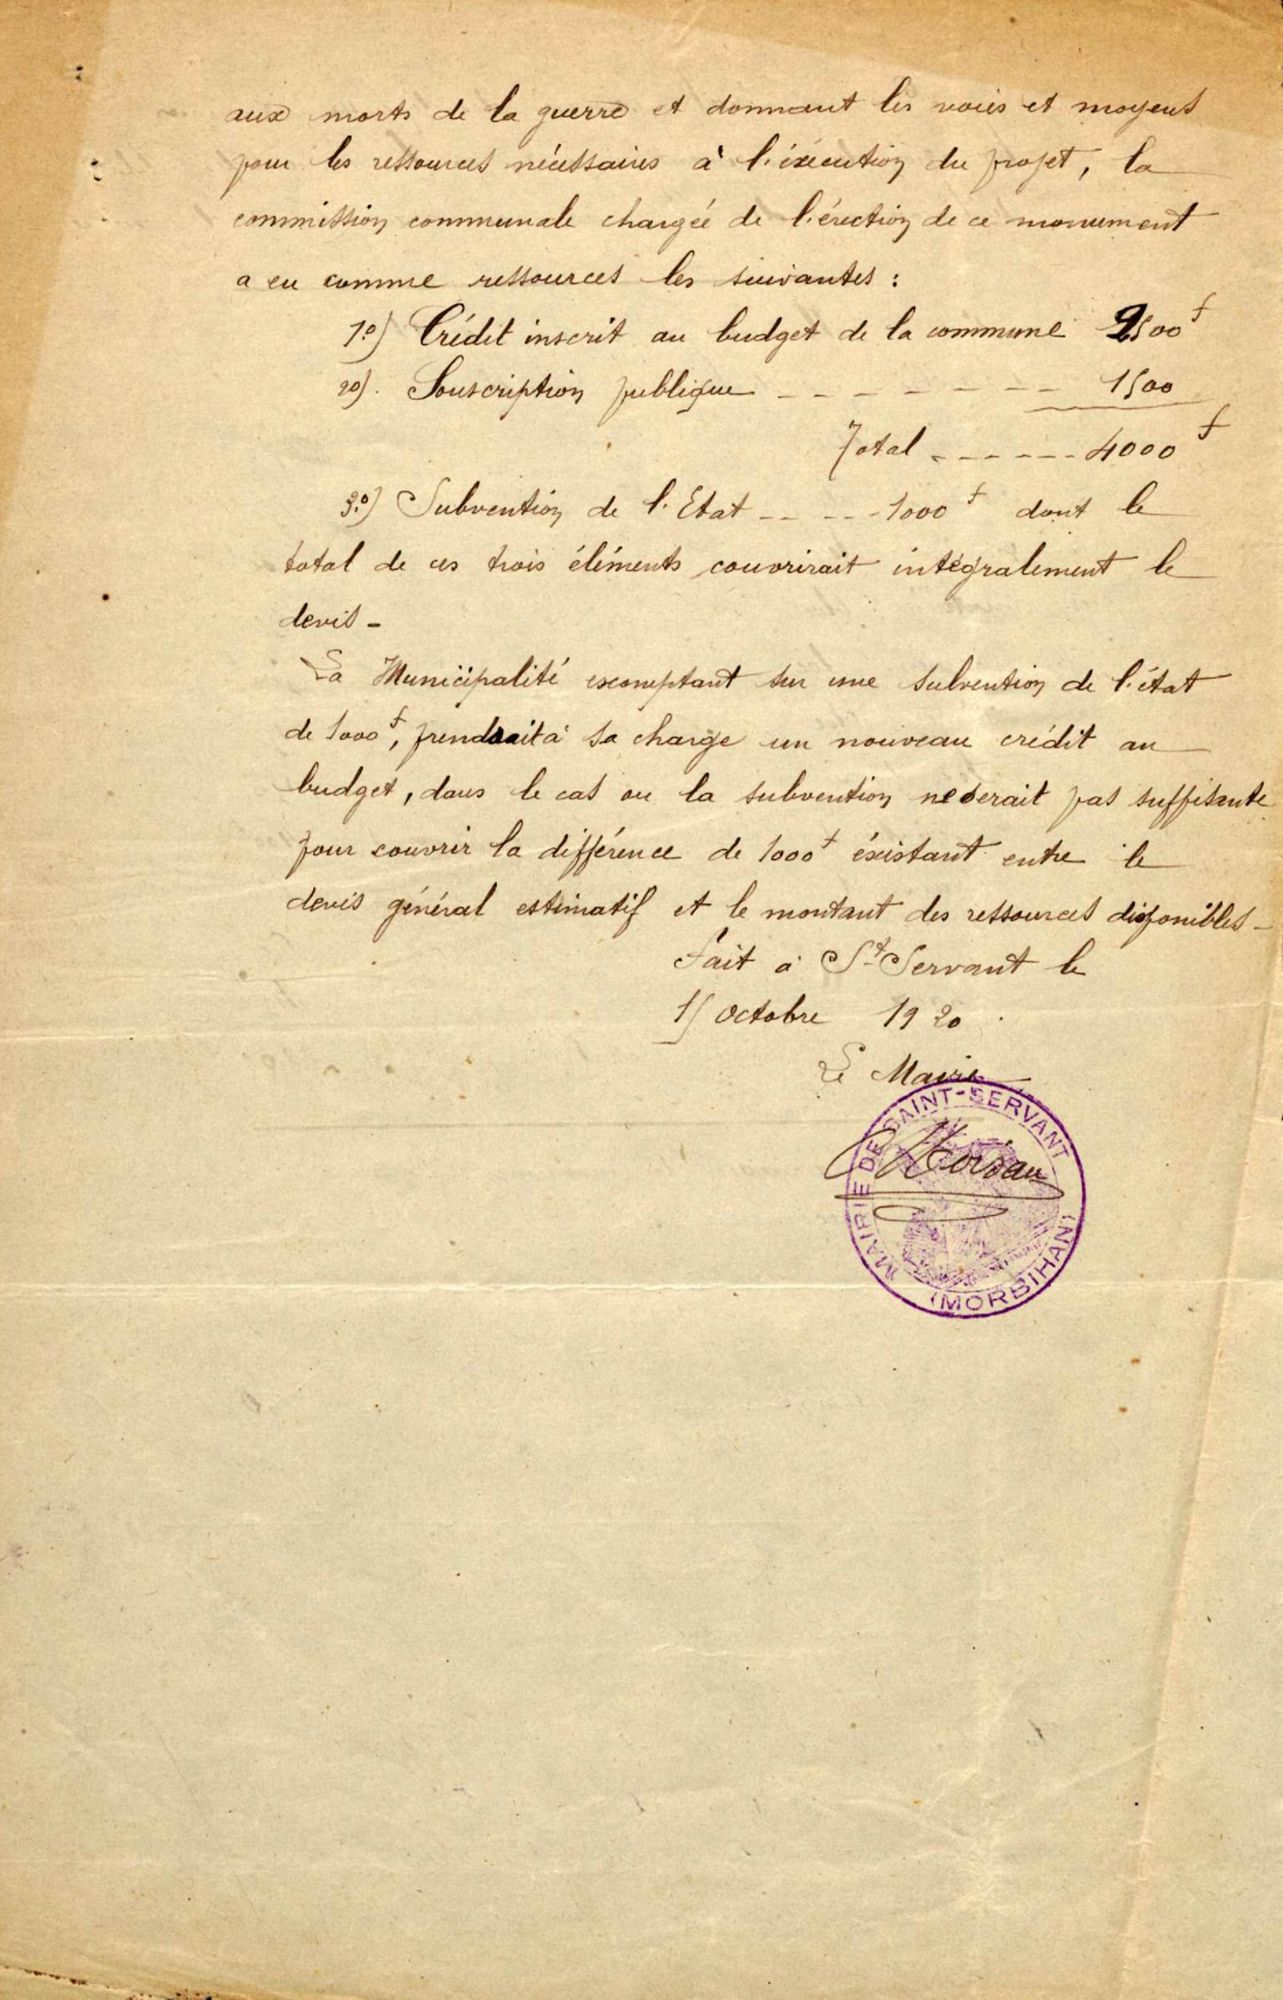 aux morts de la guerre et donnant les voies et moyens
pour les ressources nécessaires à l'éxécution du projet, la
commission communale chargée de l'érection de ce monument
a eu comme ressources les suivantes :
1º) Crédit inscrit au budget de la commune 2500 f
2º). Souscription publique _ _ _ _ _ _ _ 1500
Total _ _ _ _ _ _ 4000 f
3º) Subvention de l'Etat _ _ _ _ _ 1000 f dont le
total de ces trois éléments couvrirait intégralement le
devis _
La Municipalité escomptant sur une subvention de l'état
de 1000 f, prendrait à sa charge un nouveau crédit au
budget, dans le cas ou la subvention ne serait pas suffisante
pour couvrir la différence de 1000 f éxistant entre le
devis général estimatif et le montant des ressources disponibles _
Fait à St Servant le
15 Octobre 1920.
Le Maire
MAIRIE DE SAINT-SERVANT
(MORBIHAN)